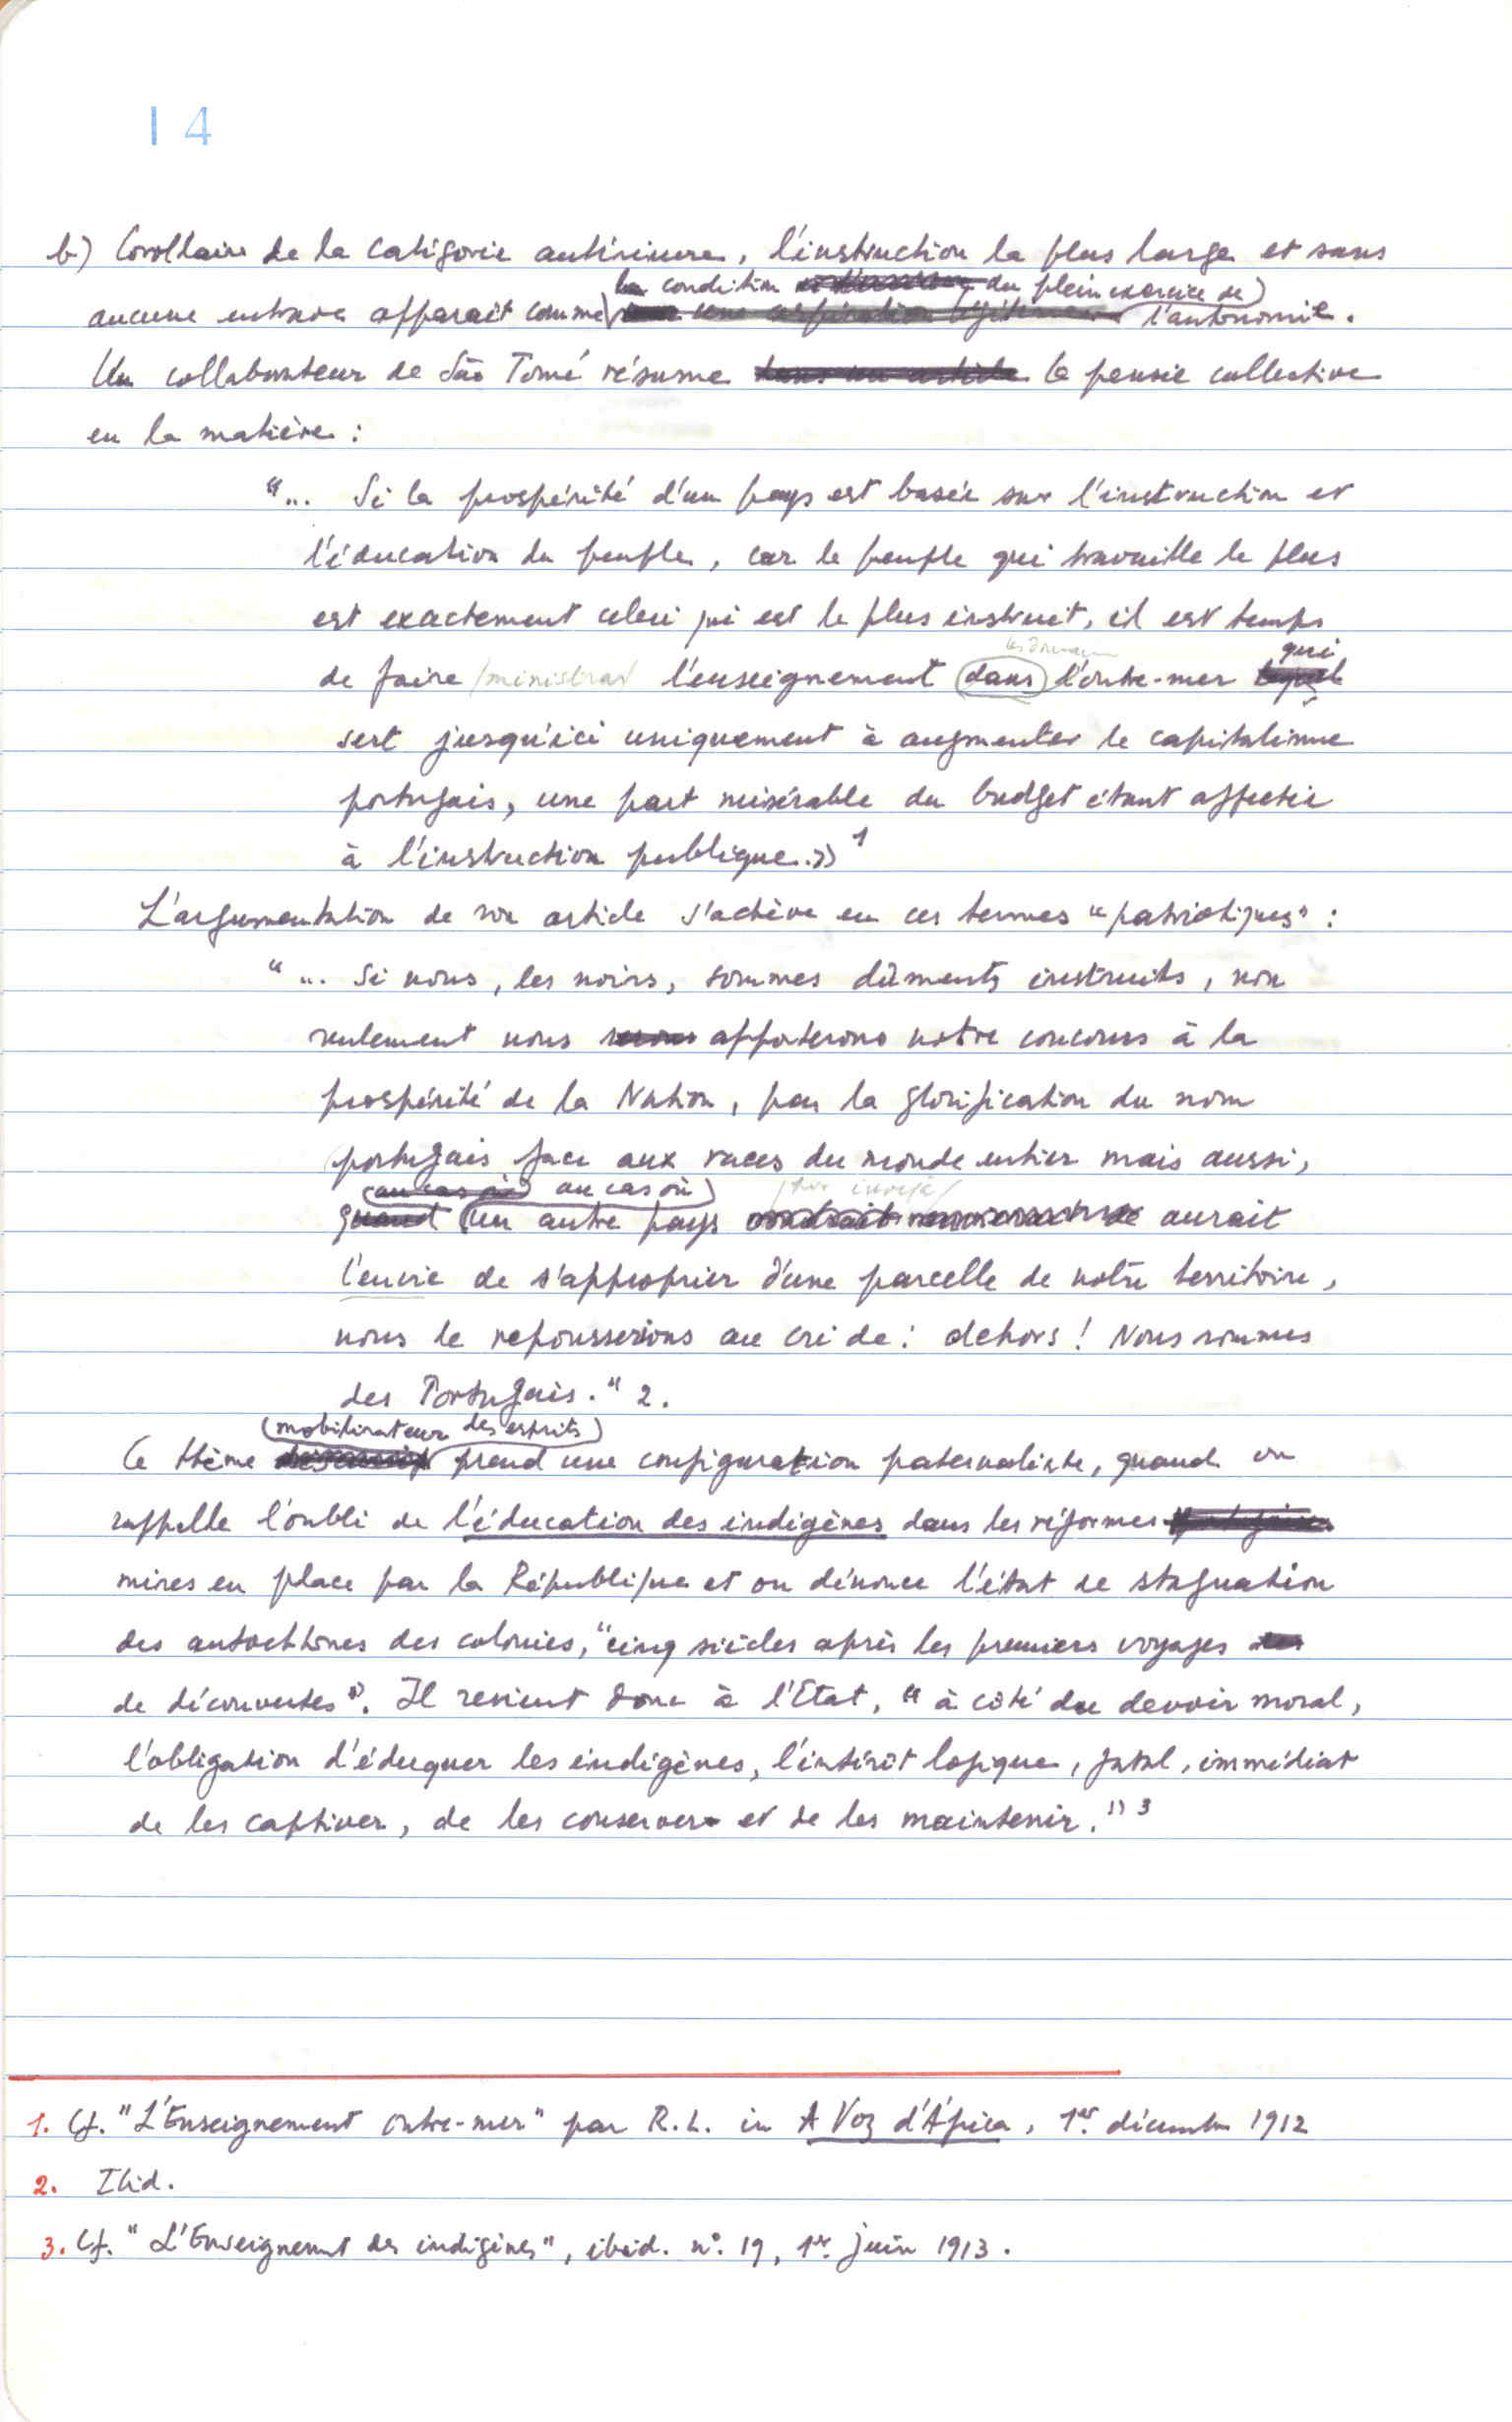 14
b) Corollaire de la catégorie antérieure, l'instruction la plus large et sans
la condition du plein exercice de
aucune entrave apparait comme l'autonomie.
Un collaborateur de São Tomé résume dans un article la pensée collective
en la matière :
"... Si la prospérité d'un pays est basée sur l'instruction et
l'éducation du peuple, car le peuple qui travaille le plus
est exactement celui qui est le plus instruit, il est temps
qui
de faire /ministrar l'enseignement dans l'outre-mer lequel
sert jusqu'ici uniquement à augmenter le capitalisme
portugais, une part misérable du budget étant affectée
à l'instruction publique.» 1
L'argumentation de son article s'achève en ces termes "patriotiques" :
"... Si nous, les noirs, sommes dûments instruits, non
seulement nous serons apporterons notre concours à la
prospérité de la Nation, par la glorification du nom
portugais face aux races du monde entier mais aussi,
au cas où au cas où
quand un autre pays aurait
l'envie de s'approprier d'une parcelle de notre territoire,
nous le repousserions au cri de : dehors ! Nous sommes
des Portugais." 2.
(mobilisateur des esprits)
Ce thème prend une configuration paternaliste, quand on
rappelle l'oubli de l'éducation des indigènes dans les réformes
mises en place par la République et on dénonce l'état de stagnation
des autochtones des colonies, "cinq siècles après les premiers voyages des
de découvertes". Il revient donc à l'Etat, "à côté du devoir moral,
l'obligation d'éduquer les indigènes, l'intérêt logique, fatal, immédiat
de les captiver, de les conserver et de les maintenir." 3
1. Cf. "L'Enseignement outre-mer" par R.L. in A Voz d'África, 1er décembre 1912
2. Ibid.
3. Cf. "L'Enseignement des indigènes", ibid. nº. 19, 1er juin 1913.